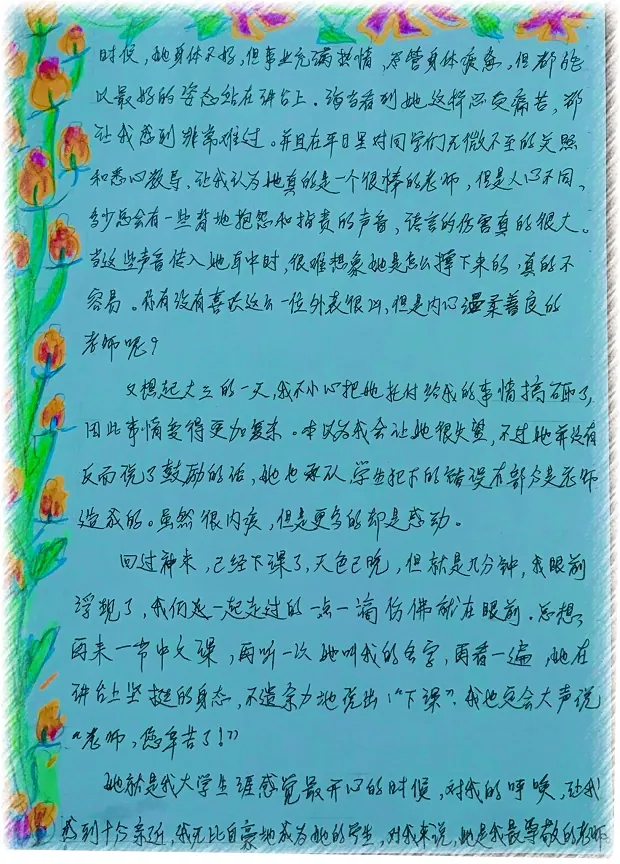 时候，她身体不好，但事业充满热情，尽管身体疲惫，但都能
以最好的姿态站在讲台上。每当看到她这样忍受痛苦，都
让我感到非常难过。并且在平日里对同学们无微不至的关照
和悉心教导，让我认为她真的是一个很棒的老师，但是人心不同，
多少总会有一些背地抱怨和指责的声音，语言的伤害真的很大。
当这些声音传入她耳中时，很难想象她是怎么撑下来的，真的不
容易。你有没有喜欢这么一位外表很凶，但是内心温柔善良的
老师呢？
又想起大三的一天，我不小心把她托付给我的事情搞砸了，
因此事情变得更加复杂。本以为我会让她很失望，不过她并没有
反而说了鼓励的话，她也承认学生犯下的错误有部分是老师
造成的。虽然很内疚，但是更多的却是感动。
回过神来，已经下课了，天色已晚，但就是几分钟，我眼前
浮现了，我们一起走过的一点一滴仿佛就在眼前。总想，
再来一节中文课，再听一次她叫我的名字，再看一遍，她在
讲台上坚挺的身态，不遗余力地说出“下课”。我也定会大声说
“老师，您辛苦了！”
她就是我大学生涯感觉最开心的时候，对我的呼唤，让我
感到十分亲近，我无比自豪地成为她的学生，对我来说，她是我最尊敬的老师